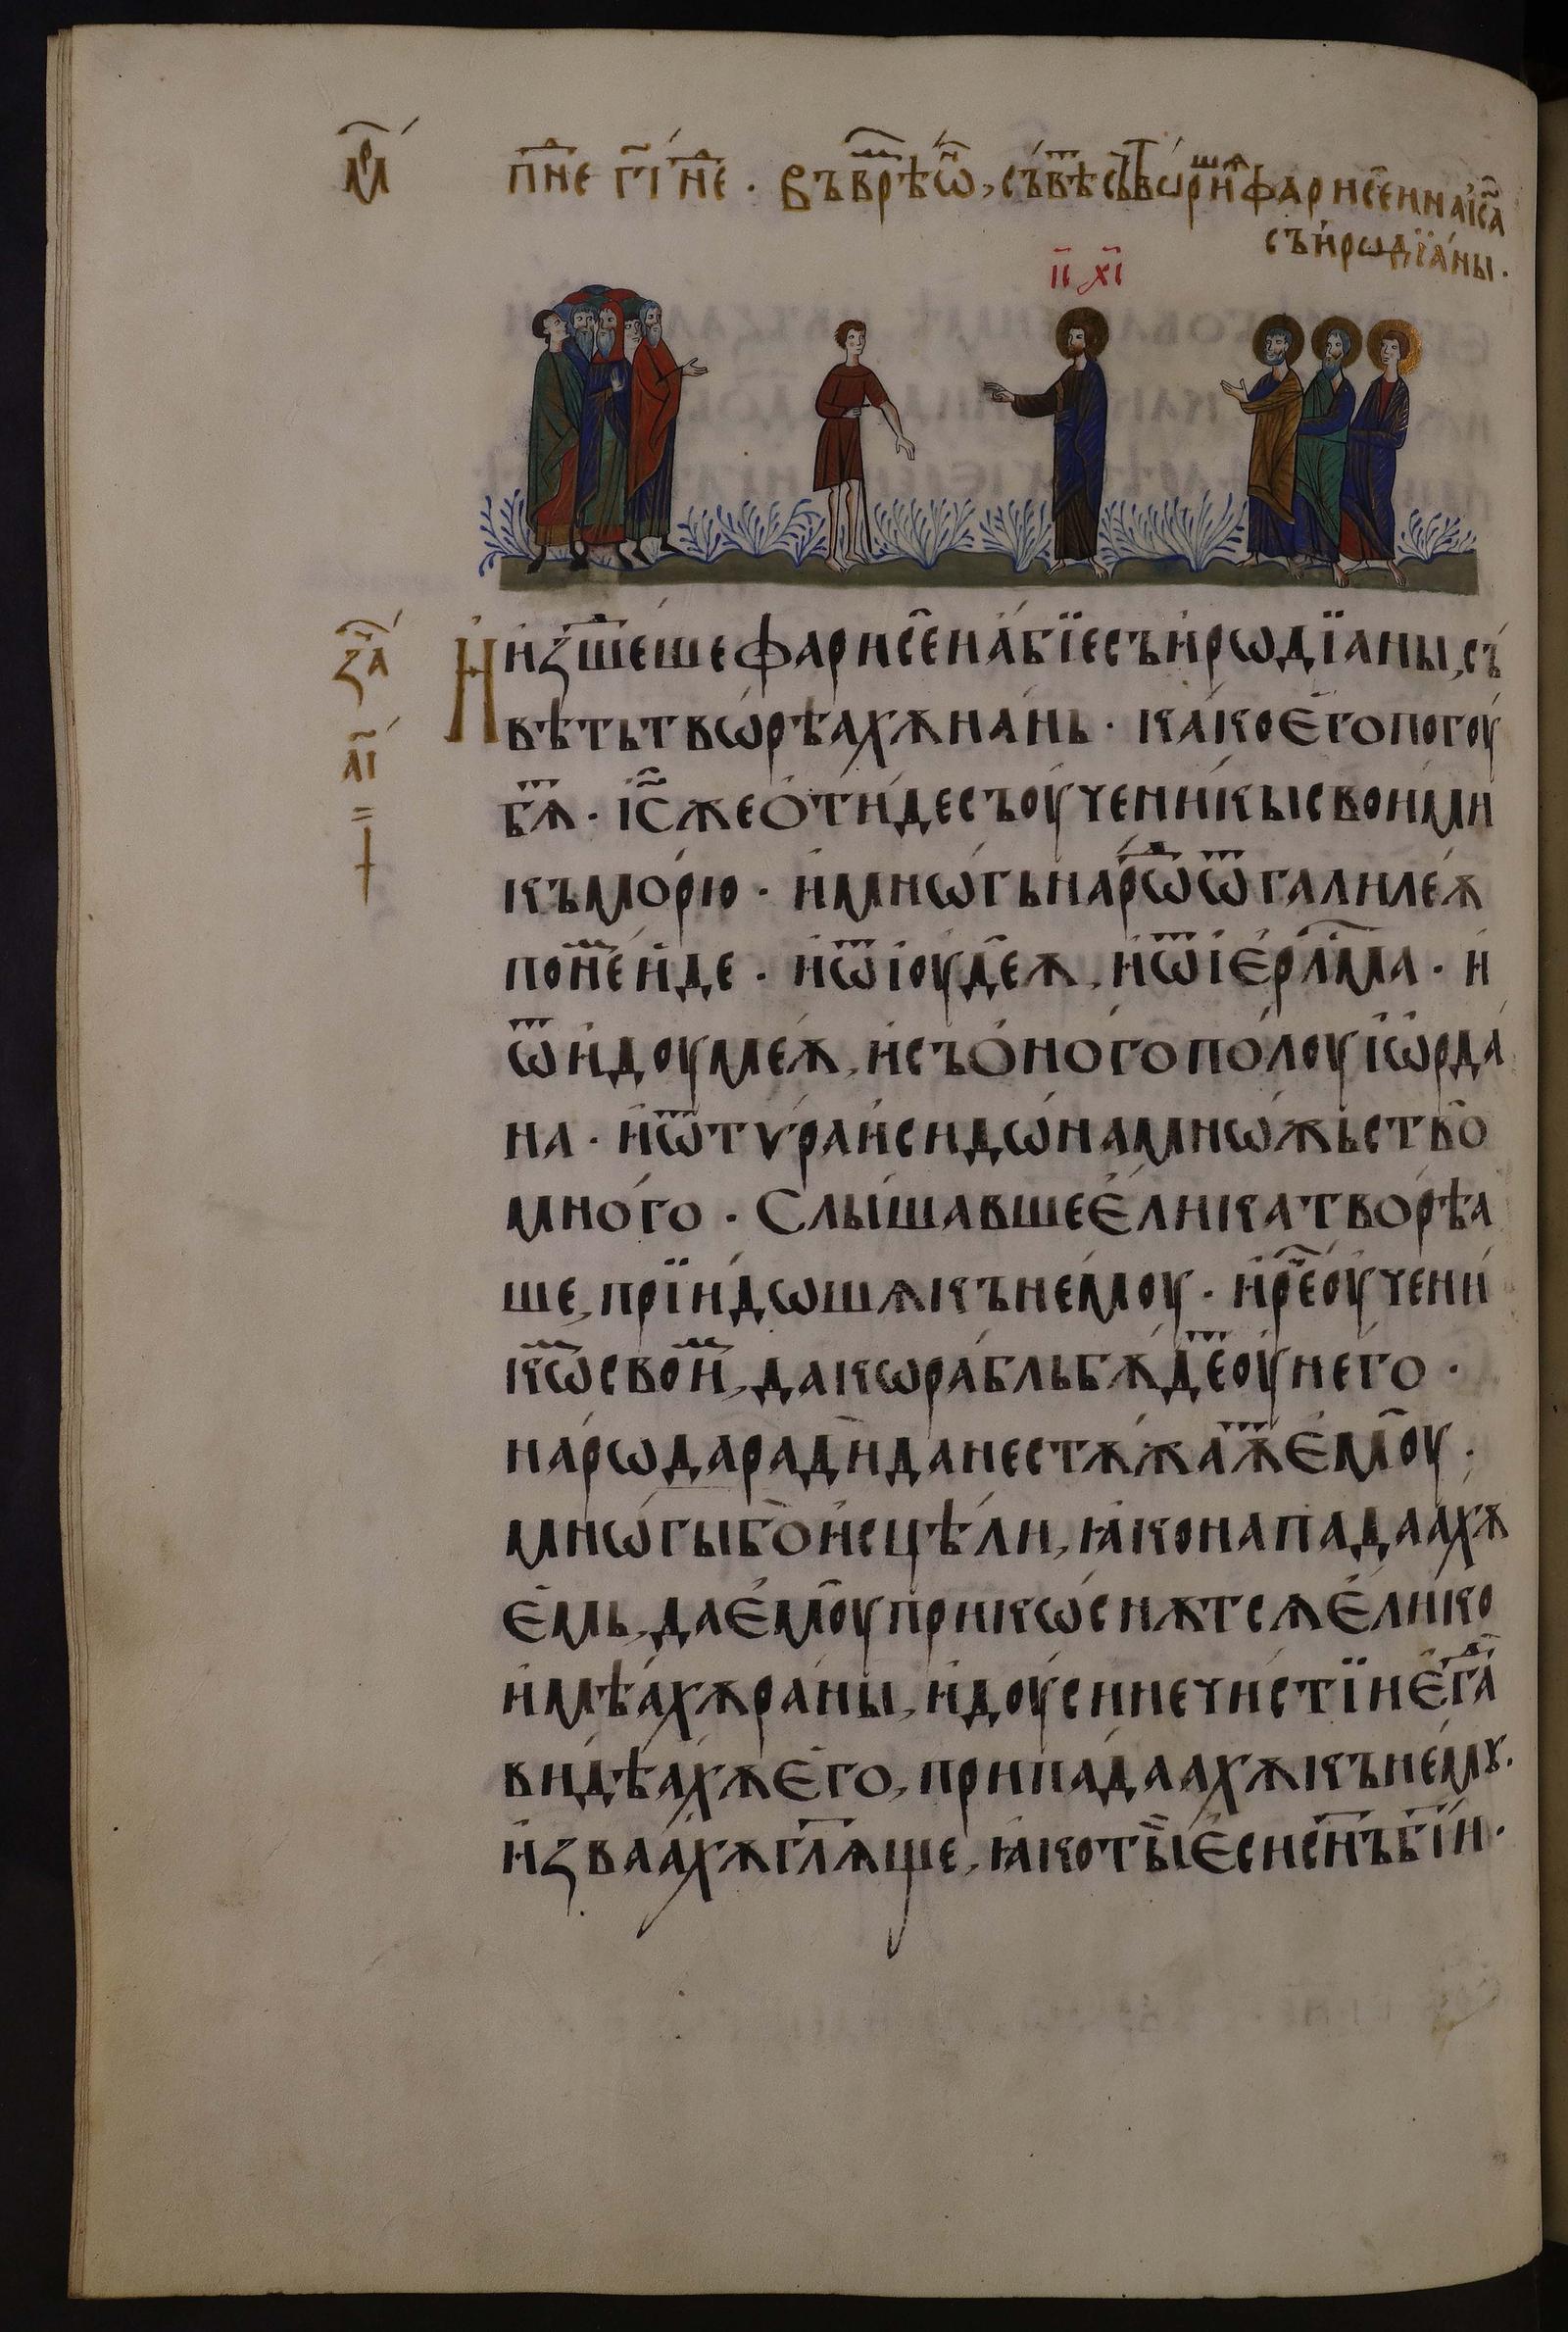 мⷬ҇к
пⷣне гі҃ нⷣе. Въ врⷨѣ ѡ҆́н, съвⷮѣ сътвѡриⷲшѧ фарисе҄и на і҆с҃а
съ и҆рѡдїа́ны.
і҃с х҃с
за҇ⷱ
а҃і
И и҆зшеⷣше фарисе҄и а҆́бїе съ и҆рѡдїаны, съ
вѣть твѡ́рѣахѫ на́нь · ка́ко е҆го погоу́
бѧⷮ · І҆с҃ же ѻ҆ти́де съ оу҆чени́кы свои́ми
къ мо́рю · и҆ мнѡ́гь нарѡⷣ ѿ галиле́ѫ
по неⷨ и҆́де · и҆ ѿ і҆оуде҄ѫ, и҆ ѿ і҆е҆рⷭ҇лма · и҆
ѿ и҆доуме́ѫ, и҆ съ ѻ҆́ного по́лоу і҆ѡ҆рда́
на · и҆ ѿ тѵ́ра и҆ сидѡ́на мнѡ́жьство
мно́го · Слы́шавше е҆ли́ка творѣ́а
ше, прїи́дѡшѧ къ не́моу · и҆ реⷱ҇ оу҆чени́
кѡⷨ свои́ⷨ, да кѡра́бль бѫ́деⷮ оу҆ него ·
на́рѡда ради да не стѫжаѫⷮ е҆мо҄у ·
мнѡ́гы бо и҆сцѣ́ли, ꙗ҆ко нападаа́хѫ
е҆мь, да е҆мо҄у прикѡ́снѫтсѧ е҆ли́ко
и҆мѣа́хѫ ра́ны, и҆ доу́си нечи́стїи е҆гⷣа
ви́дѣахѫ е҆го, припа́даахѫ къ не́мꙋ.
и҆ зваа́хѫ гл҃ѧще, ꙗ҆ко ты̀ е҆си сн҃ъ бж҃їи.